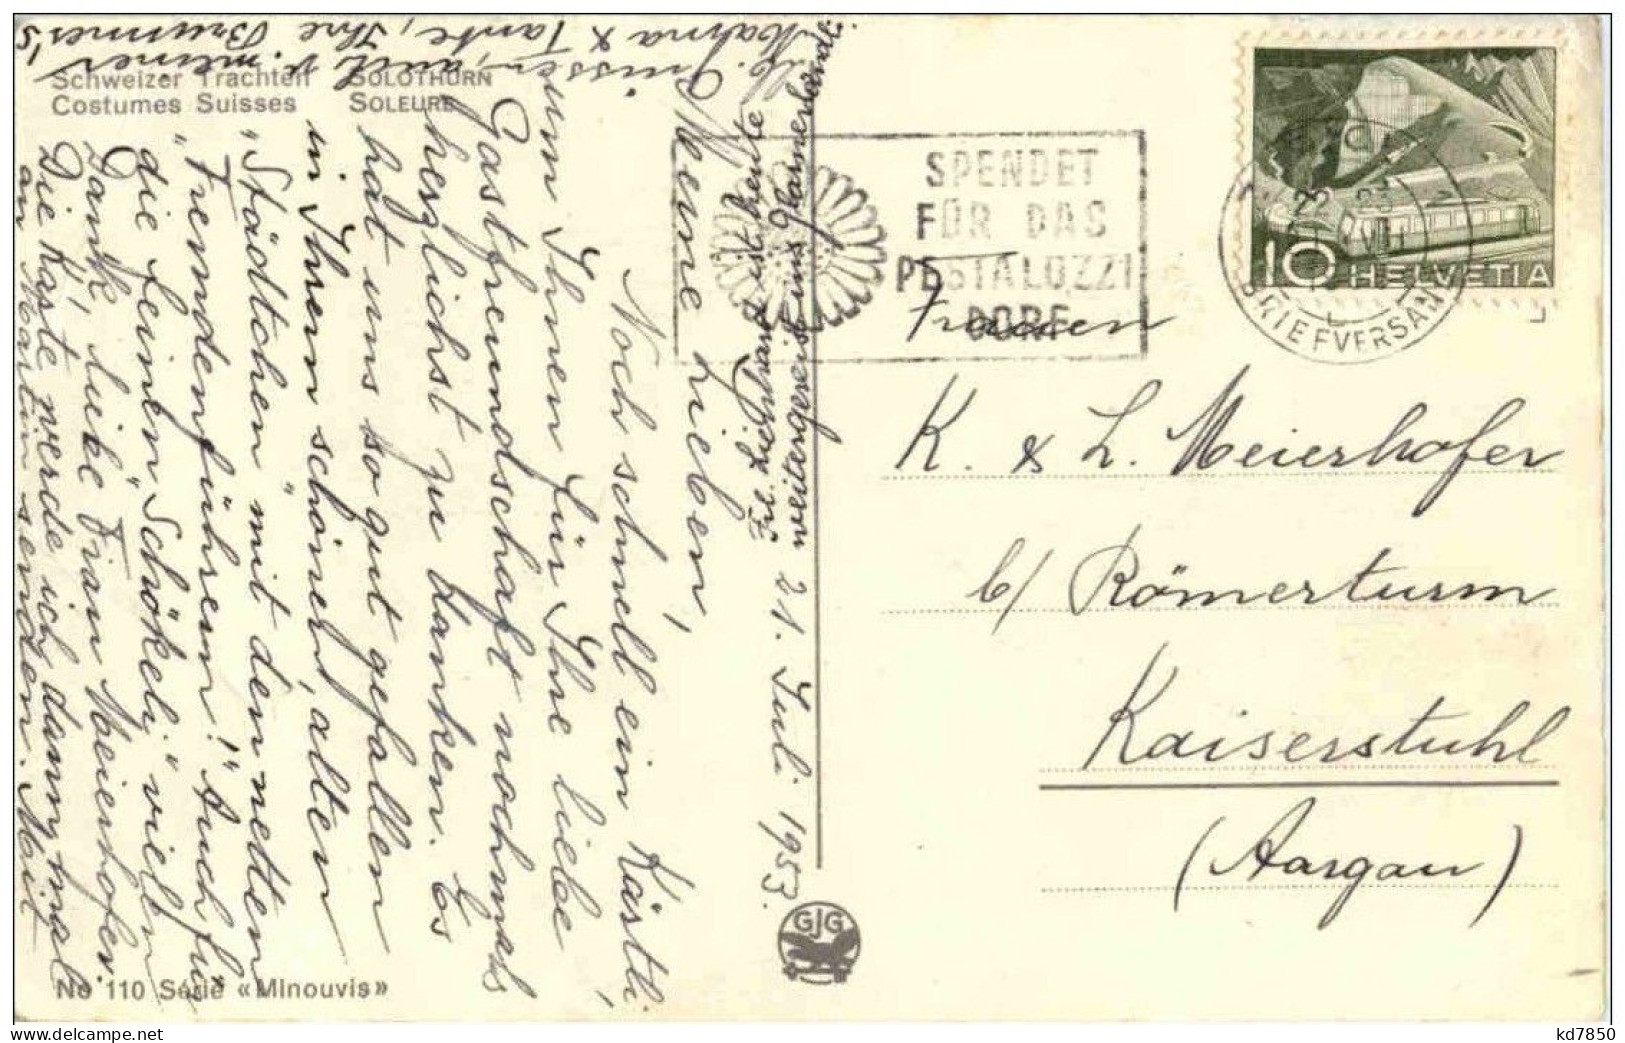 Schweizer Trachten SOLOTHURN
Costumes Suisses SOLEURE
21. Juli 1953.
Meine Lieben,
Noch schnell ein Kärtli,
um Ihnen für Ihre liebe
Gastfreundschaft nochmals
herzlichst zu danken. Es
hat uns so gut gefallen
in Ihrem schönen, alten
"Städtchen" mit dem netten
"Fremdenführern!" Auch für
die feinen "Schökeli" vielen
Dank, liebe Frau Meierhofer.
Die Käste werde ich dann mal
an Martin senden. Mit
lb. Grüssen, auch v. meiner
Mama & Tante, Ihre Brunner's
Frl. ist heute
weitergereist ins Glarnerland.
SPENDET
FÜR DAS
PESTALOZZI
DORF
10 HELVETIA
BRIEFVERSAND
Frauen
K. & L. Meierhofer
b/ Römerturm
Kaiserstuhl
(Aargau)
GJG
No 110 Série «Minouvis»
kd7850